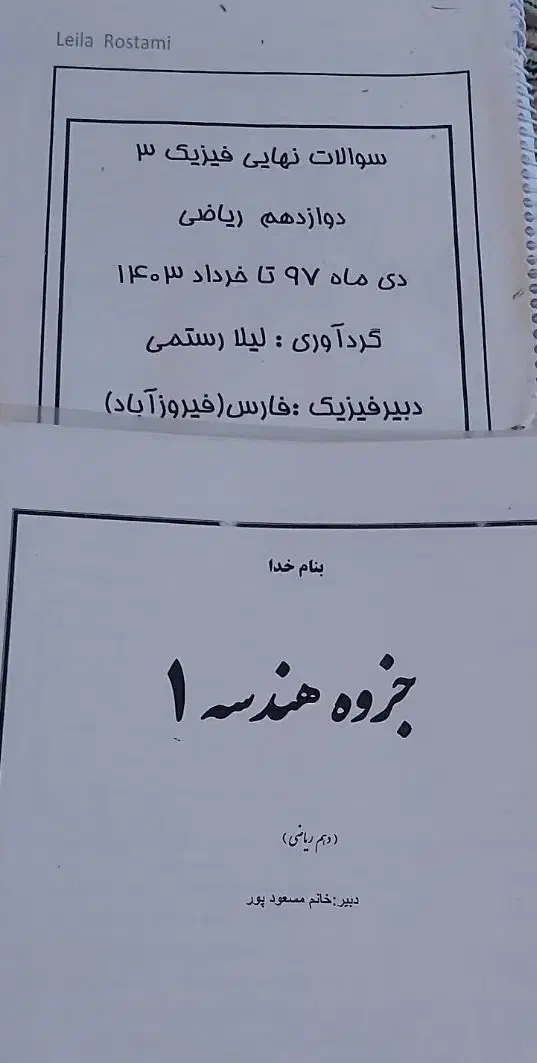 Leila Rostami
سوالات نهایی فیزیک ۳
دوازدهم ریاضی
دی ماه ۹۷ تا خرداد ۱۴۰۳
گردآوری : لیلا رستمی
دبیرفیزیک :فارس(فیروزآباد)
بنام خدا
جزوه هندسه ۱
(دهم ریاضی)
دبیر:خانم مسعود پور